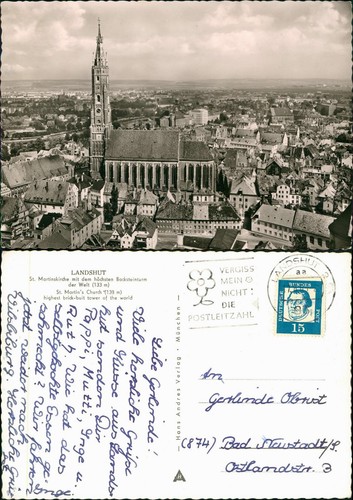 LANDSHUT
St. Martinskirche mit dem höchsten Backsteinturm
der Welt (133 m)
St. Martin's Church (133 m)
highest brick-built tower of the world
Hans Andres Verlag · München
VERGISS
MEIN
NICHT
DIE
POSTLEITZAHL
LANDSHUT
DEUTSCHE BUNDESPOST
LUTHER
15
Liebe Gerlinde!
Viele herzliche Grüße
und Küsse aus Landshut
senden Dir
Papa, Mutti, Inge u.
Ruth. Wie hat das
selbstgekochte Essen ge-
schmeckt? Wir fahren
jetzt wieder nach
Vilsbiburg.
Inge
An
Gerlinde Obert
(874) Bad Neustadt/S.
Ostlandstr. 3